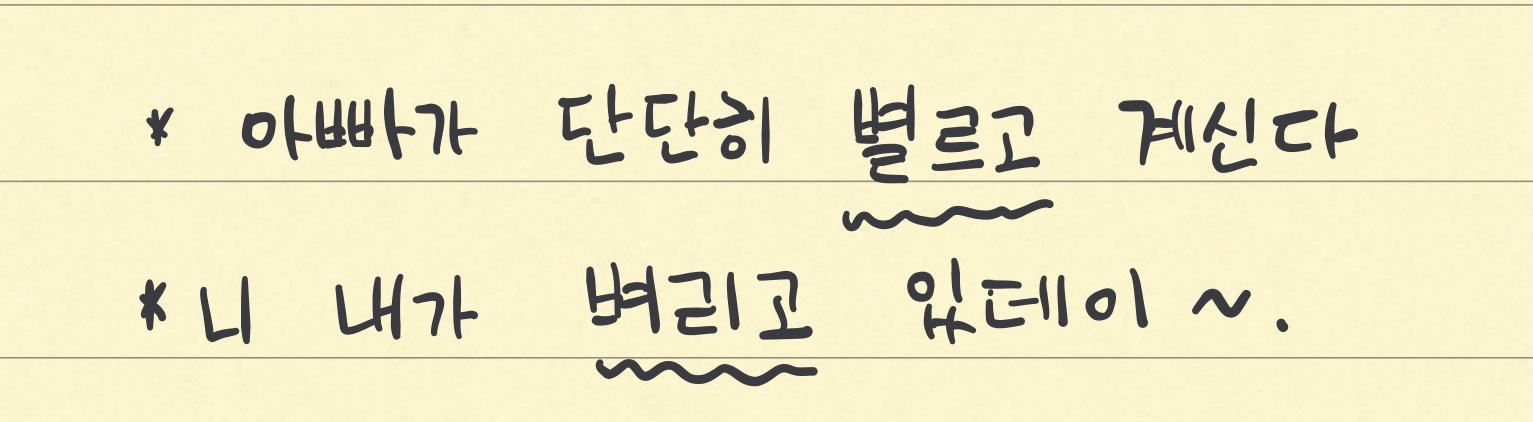 * 아빠가 단단히 별르고 계신다
* 니 내가 벼리고 있데이 ~.